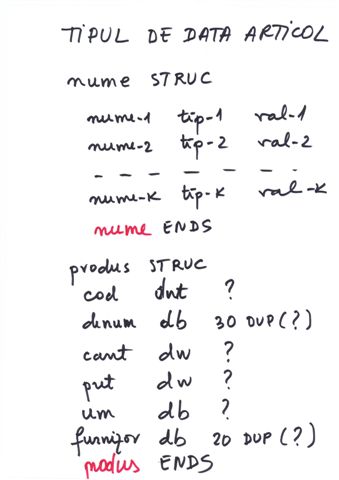 TIPUL DE DATA ARTICOL
nume STRUC
nume-1 tip-1 val-1
nume-2 tip-2 val-2
- - - - - - -
nume-K tip-K val-K
nume ENDS
produs STRUC
cod dnt ?
denum db 30 DUP (?)
cant dw ?
put dw ?
um db ?
furnizor db 20 DUP (?)
produs ENDS